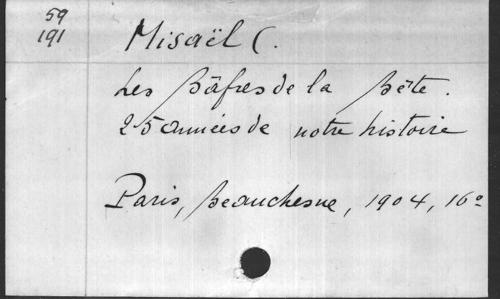 59
191
Misaël C.
Les Bâfres de la Bête.
25 années de notre histoire
Paris, Beauchesne, 1904, 16°